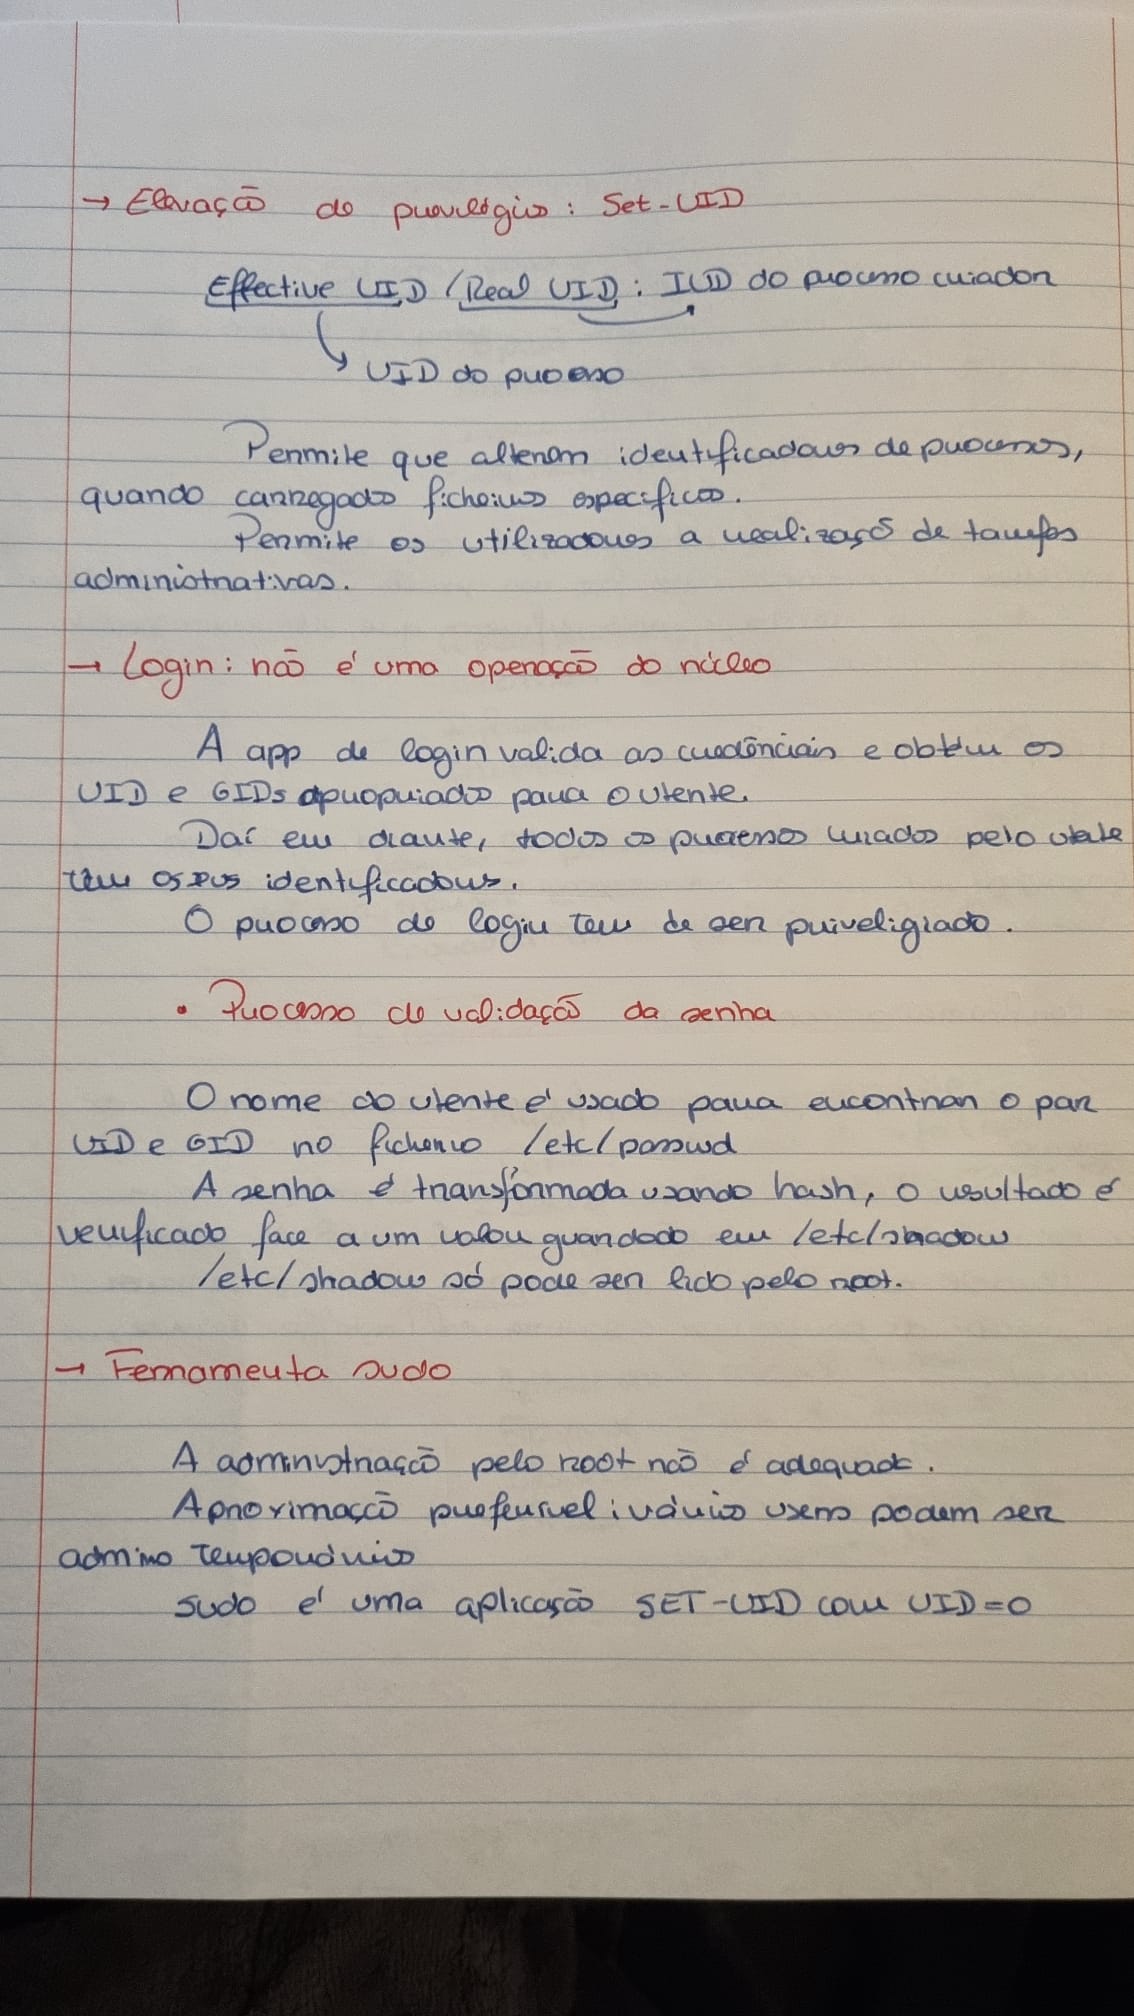 → Elevação de privilégios: Set-UID
Effective UID / Real UID: UID do processo criador
UID do processo
Permite que alterem identificadores de processos,
quando carregados ficheiros específicos.
Permite os utilizadores a realização de tarefas
administrativas.
→ Login: não é uma operação do núcleo
A app de login valida as credênciais e obtém os
UID e GIDs apropriados para o utente.
Daí em diante, todos os processos criados pelo utente
têm os seus identificadores.
O processo de login tem de ser priveligiado.
• Processo de validação da senha
O nome do utente é usado para encontrar o par
UID e GID no ficheiro /etc/passwd
A senha é transformada usando hash, o resultado é
verificado face a um valor guardado em /etc/shadow
/etc/shadow só pode ser lido pelo root.
→ Ferramenta sudo
A administração pelo root não é adequada.
Aproximação preferível: vários users podem ser
admins temporários
sudo é uma aplicação SET-UID com UID=0